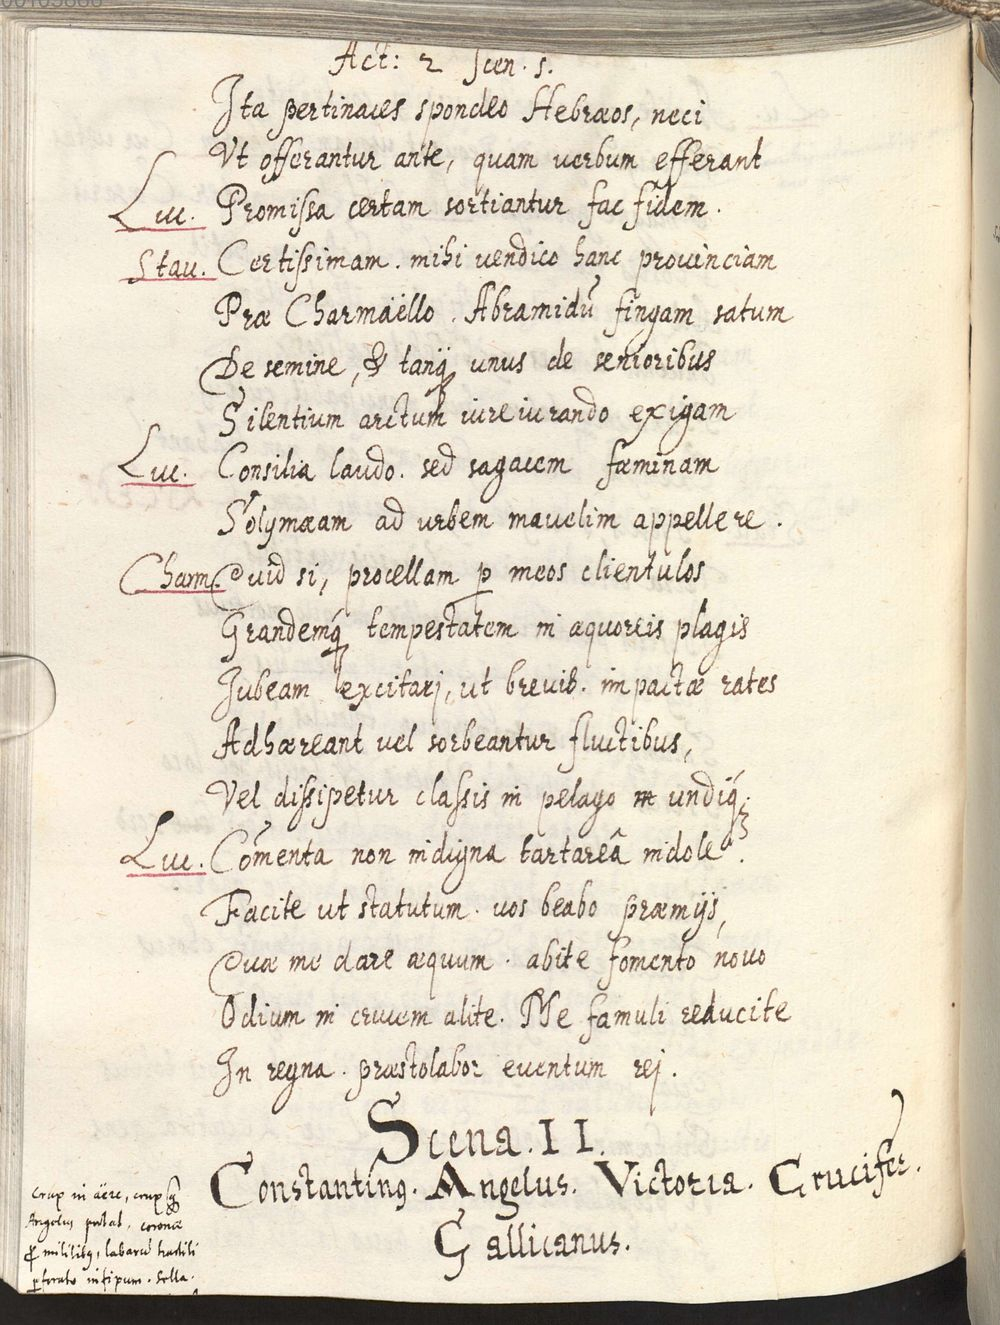 Act: 2 Scen. 1.
Ita pertinaces spondeo Hebræos, neci
Vt offerantur ante, quam uerbum efferant
Luc. Promissa certam sortiantur fac fidem.
Stau. Certissimam. mihi uendico hanc prouinciam
Præ Charmaëllo. Abramidũ fingam satum
De semine, & tanq̃ unus de senioribus
Silentium arctum iureiurando exigam
Luc. Consilia laudo. sed sagacem fæminam
Solymæam ad urbem mauelim appellere.
Charm. Quid si, procellam ꝑ meos clientulos
Grandemq́ tempestatem in æquoreis plagis
Iubeam excitarj, ut breuib. impactæ rates
Adhæreant uel sorbeantur fluctibus,
Vel dissipetur classis in pelago undiq́;
Luc. Cõmenta non indigna tartareâ indole.
Facite ut statutum. uos beabo præmijs,
Quæ me dare æquum. abite fomento nouo
Odium in crucem alite. Me famuli reducite
In regna. præstolabor euentum rej.
Scena. II.
Constantinꝰ. Angelus. Victoria. Crucifer.
Gallicanus.
Crux in äere, crux q̃
Angelus portat, coronæ
militibꝰ, labarũ hastili